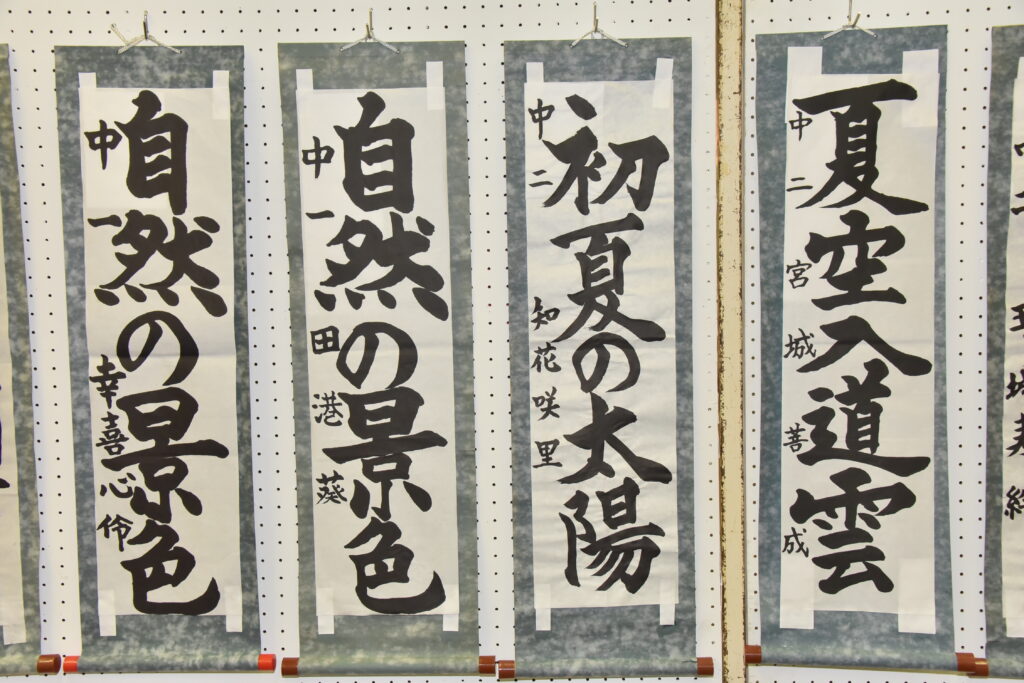 夏空入道雲
中二 宮城善成
初夏の太陽
中二 知花咲里
自然の景色
中一 田港葵
自然の景色
中一 幸喜心伶